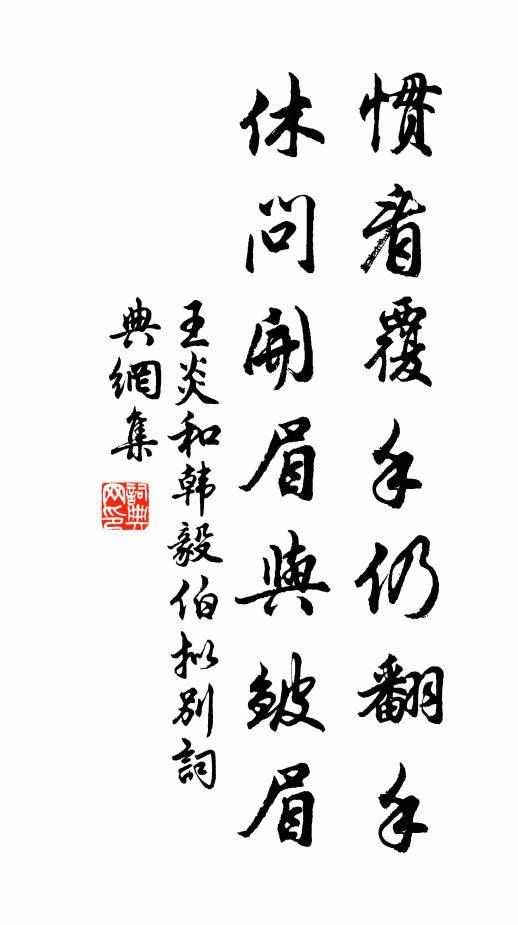 慣看覆手仍翻手
休問開眉與皺眉
王炎和韩毅伯拟别詞
典網集
詞典网印